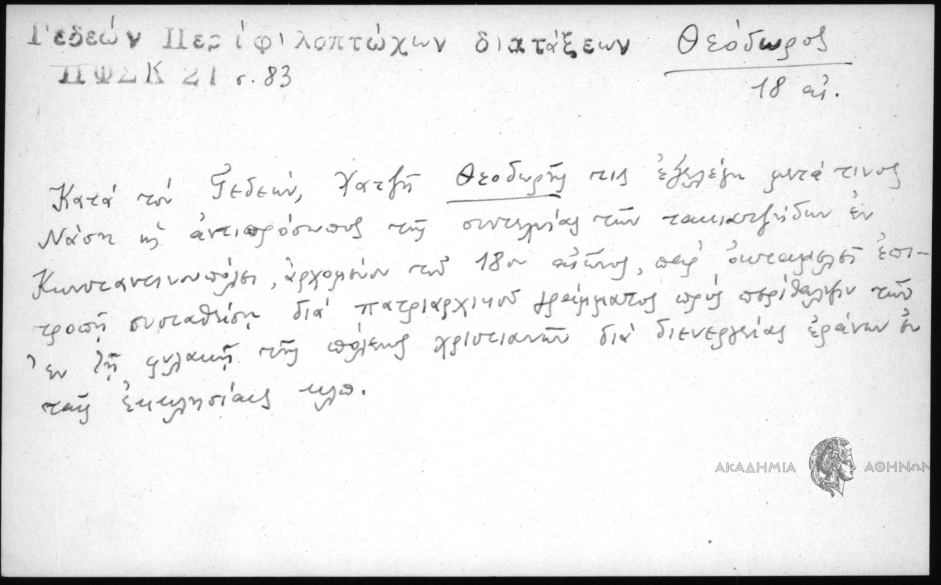 Γεδεών Περί φιλοπτώχων διατάξεων Θεόδωρος
ΠΦΣΚ 21 σ. 83
18 αἰ.
Κατά τόν Γεδεών, Χατζῆ Θεοδωρῆς τις ἐξελέγη μετά τινος
Νάση ὡς ἀντιπρόσωπος τῆς συντεχνίας τῶν τακιατζήδων ἐν
Κωνσταντινουπόλει, ἀρχομένου τοῦ 18ου αἰῶνος, παρ' ὀκταμελεῖ ἐπι-
τροπῇ συσταθείσῃ διά πατριαρχικοῦ γράμματος πρός περίθαλψιν τῶν
ἐν τῇ φυλακῇ τῆς πόλεως χριστιανῶν διά διενεργείας ἐράνων ἐν
ταῖς ἐκκλησίαις κλπ.
ΑΚΑΔΗΜΙΑ ΑΘΗΝΩΝ